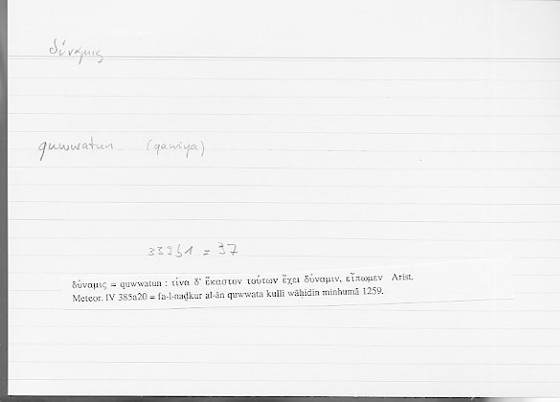 δύναμις
quwwatun (qawiya)
33251 = 37
δύναμις = quwwatun : τίνα δ' ἕκαστον τούτων ἔχει δύναμιν, εἴπωμεν Arist.
Meteor. IV 385a20 = fa-l-naḏkur al-ān quwwata kulli wāḥidin minhumā 1259.